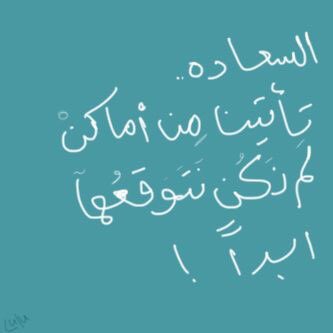 السعاده..
تِأتينا مِن أماكنْ
لم نَكُن نَتَوَقعُهآ
ابداً !
lulu